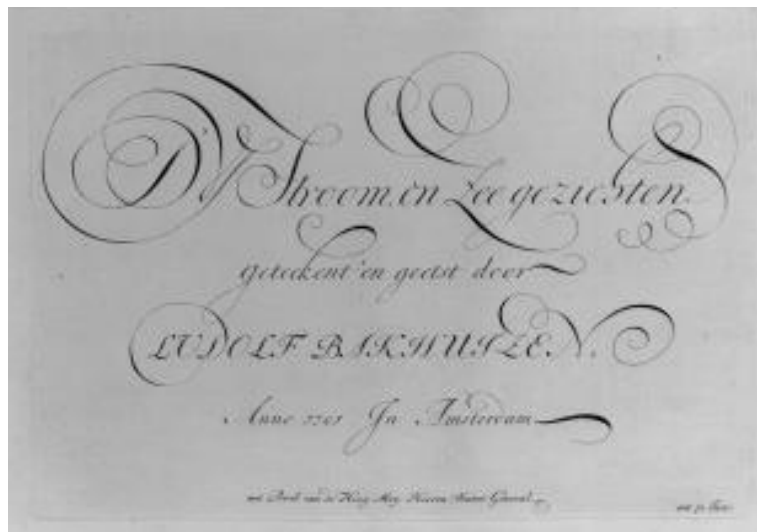 D'Y Stroom, en Zee gezichten.
geteekent en geëtst door
LUDOLF BAKHUIZEN.
Anno 1701 In Amsterdam
met Previl van de Hoog Mog. Heeren Staten Generael